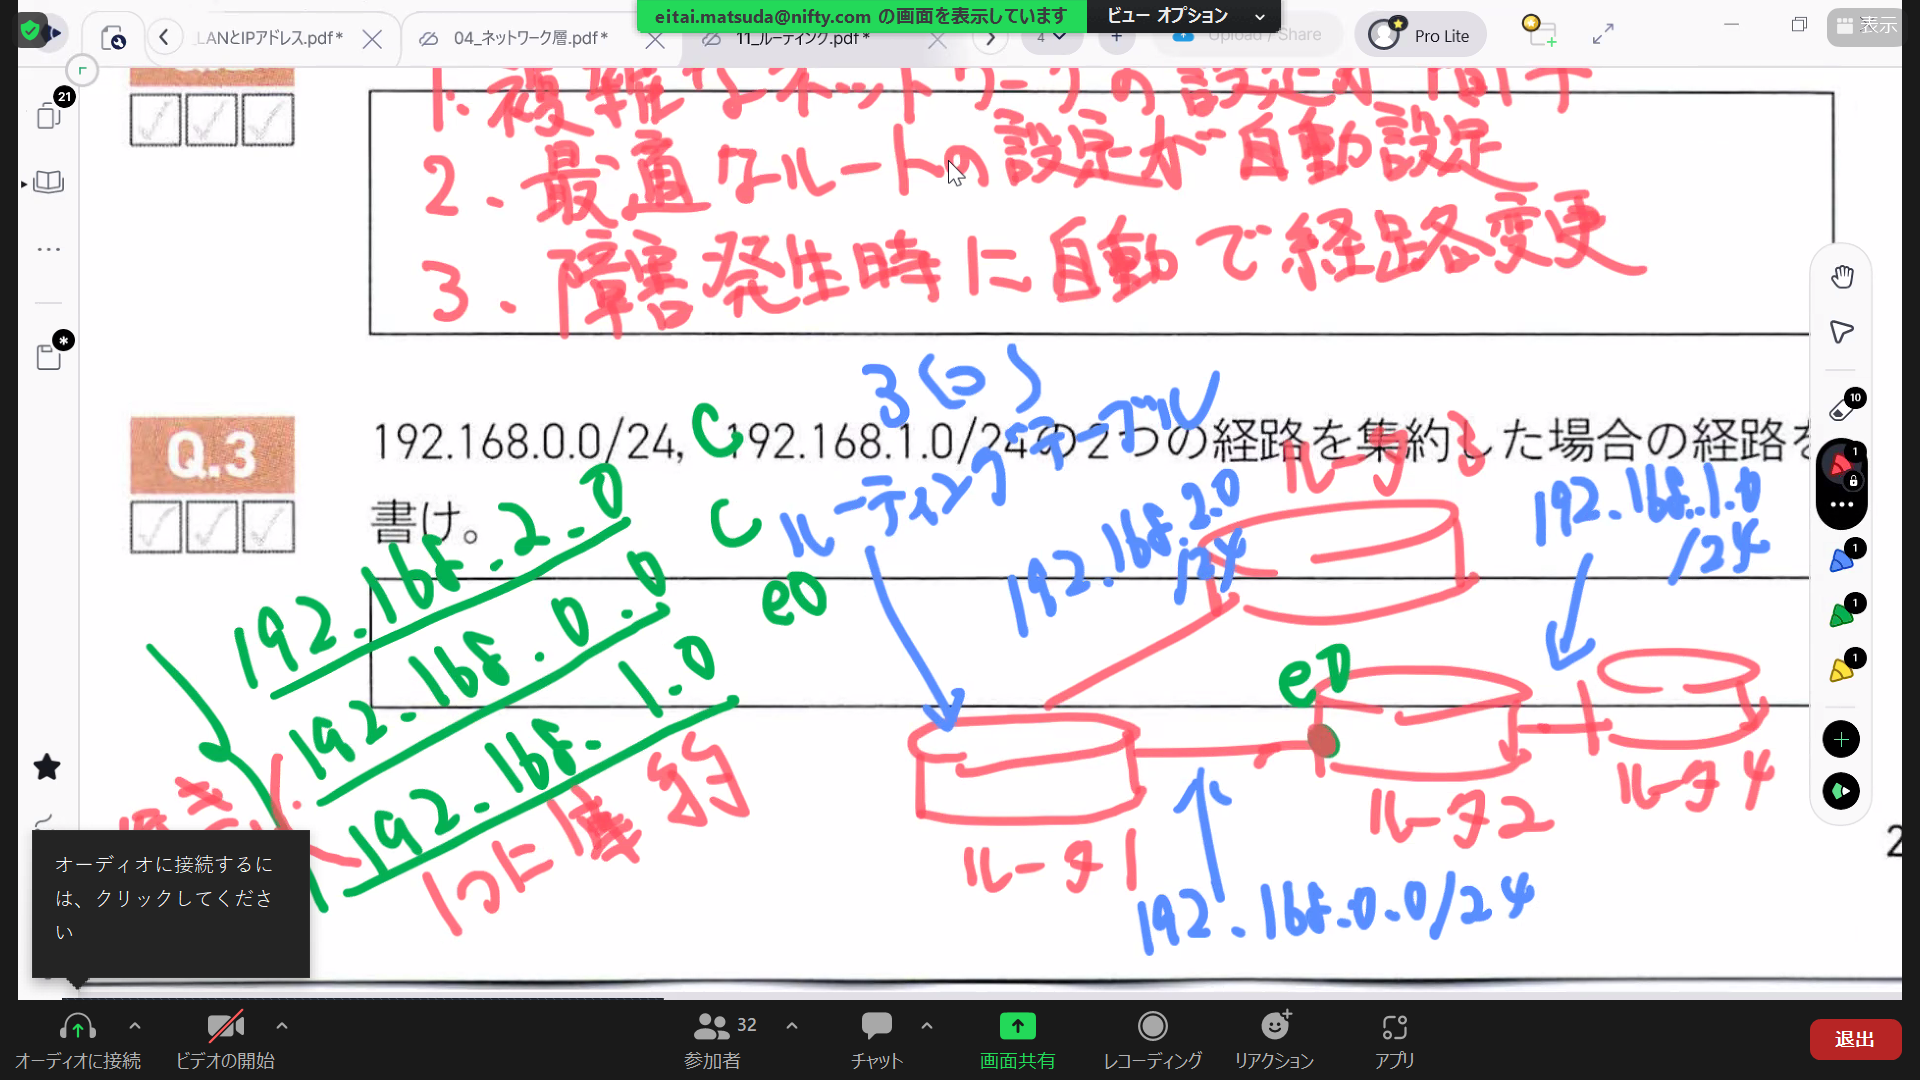 eitai.matsuda@nifty.com の画面を表示しています
ビュー オプション
表示
LANとIPアドレス.pdf*
04_ネットワーク層.pdf*
11_ルーティング.pdf*
4
Upload / Share
Pro Lite
21
1.複雑なネットワークの設定が簡単
2.最適なルートの設定が自動設定
3.障害発生時に自動で経路変更
3(コ)
Q.3
192.168.0.0/24, 192.168.1.0/24の2つの経路を集約した場合の経路を
書け。
C
C
e0
ルーティングテーブル
ルータ3
192.168.2.0
/24
192.168.1.0
/24
192.168.2.0
192.168.0.0
192.168.1.0
e0
1つに集約
ルータ1
ルータ2
ルータ4
192.168.0.0/24
10
1
1
1
1
2
オーディオに接続するに
は、クリックしてくださ
い
オーディオに接続
ビデオの開始
32
参加者
チャット
画面共有
レコーディング
リアクション
アプリ
退出